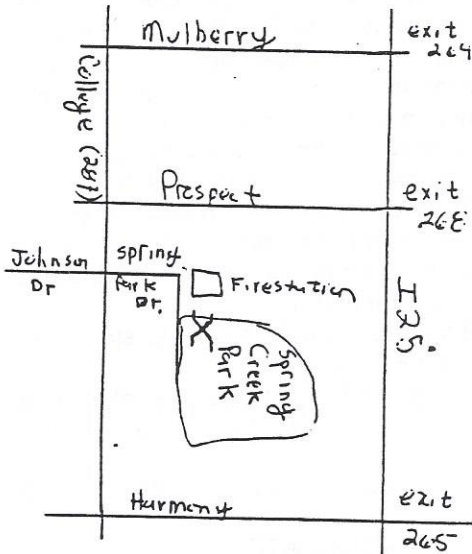 Mulberry
exit
264
College (287)
Prospect
exit
268
Johnson
Dr
Spring
Park
Dr.
Firestation
I25
Spring
Creek
Park
Harmony
exit
265